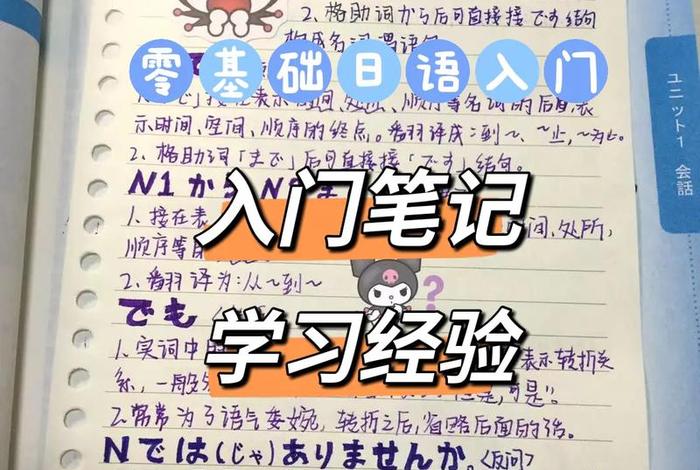 2、格助词から后可直接接です结句
构成名词谓语句
零基础日语入门
示时间、空间、顺序的终点。翻译成:到～、～止,～为止。
2、格助词「まで」后可直接接「です」结句。
N1から N2ま
入门笔记
1、接在表
间、处所,
顺序等
2、翻译为:从～到～
でも
?
学习经验
1、实词中
表示转折关
系,一般
可是"。
2、常常为了语气委婉,转折之后,省略后面的话。
Nでは(じゃ)ありませんか。〈反问〉
ユニット1 会話